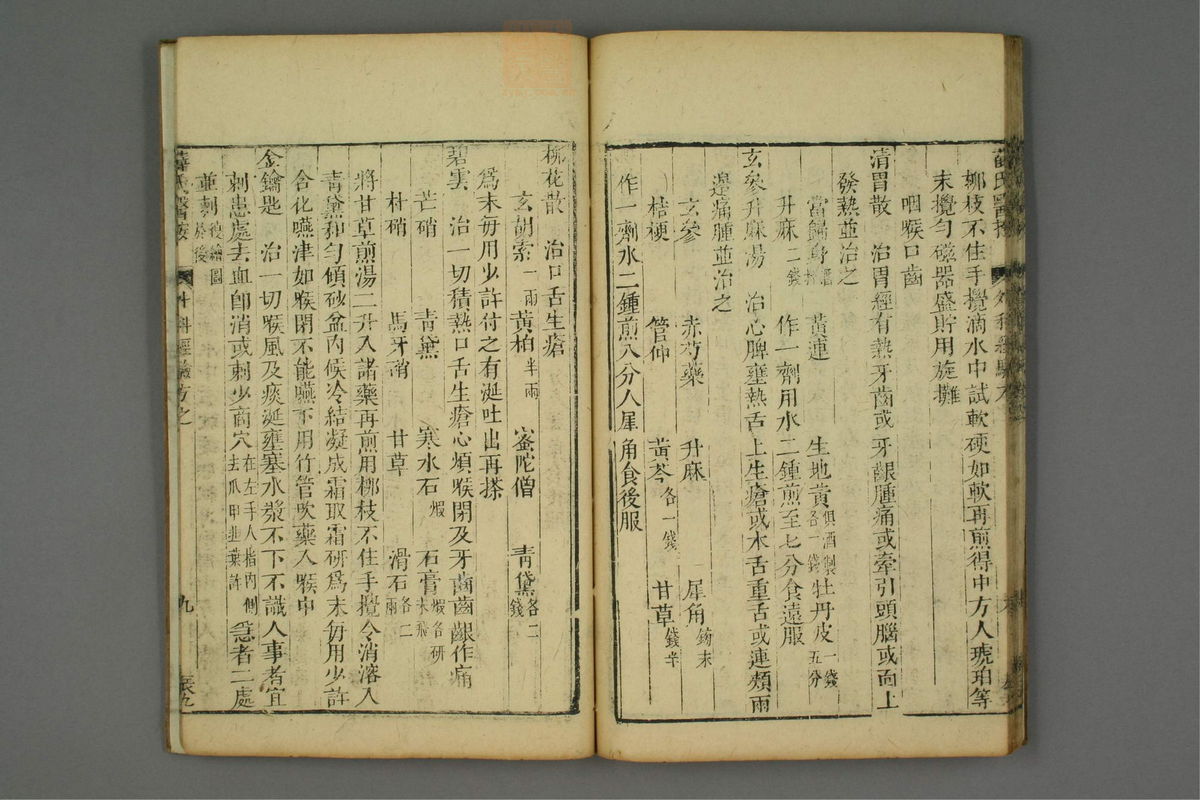 薛氏醫按 外科經驗方
柳枝不住手攪滴水中試軟硬如軟再煎得中方入琥珀等
末攪勻磁器盛貯用旋攤
咽喉口齒
清胃散 治胃經有熱牙齒或牙齦腫痛或牽引頭腦或面上
發熱並治之
當歸身 黃連 生地黃俱酒製各一錢 牡丹皮一錢五分
升麻二錢 作一劑用水二鍾煎至七分食遠服
玄參升麻湯 治心脾壅熱舌上生瘡或木舌重舌或連頰兩
邊痛腫並治之
玄參 赤芍藥 升麻 犀角鎊末
桔梗 管仲 黃芩各一錢 甘草錢半
作一劑水二鍾煎八分入犀角食後服
柳花散 治口舌生瘡
玄胡索一兩 黃柏半兩 密陀僧 青黛各二錢
爲末每用少許付之有涎吐出再搽
碧雲 治一切積熱口舌生瘡心煩喉閉及牙齒齒齦作痛
芒硝 青黛 寒水石煅 石膏煅各研末飛
朴硝 馬牙硝 甘草 滑石各二兩
將甘草煎湯二升入諸藥再煎用柳枝不住手攪令消溶入
青黛和勻傾砂盆內候冷結凝成霜取霜研爲末每用少許
含化嚥津如喉閉不能嚥下用竹管吹藥入喉中
金鑰匙 治一切喉風及痰涎壅塞水漿不下不識人事者宜
刺患處去血即消或刺少商穴在左手人指內側去爪甲韭葉許 急者二處
並刺後繪圖於後
薛氏醫按 外科經驗方之 九